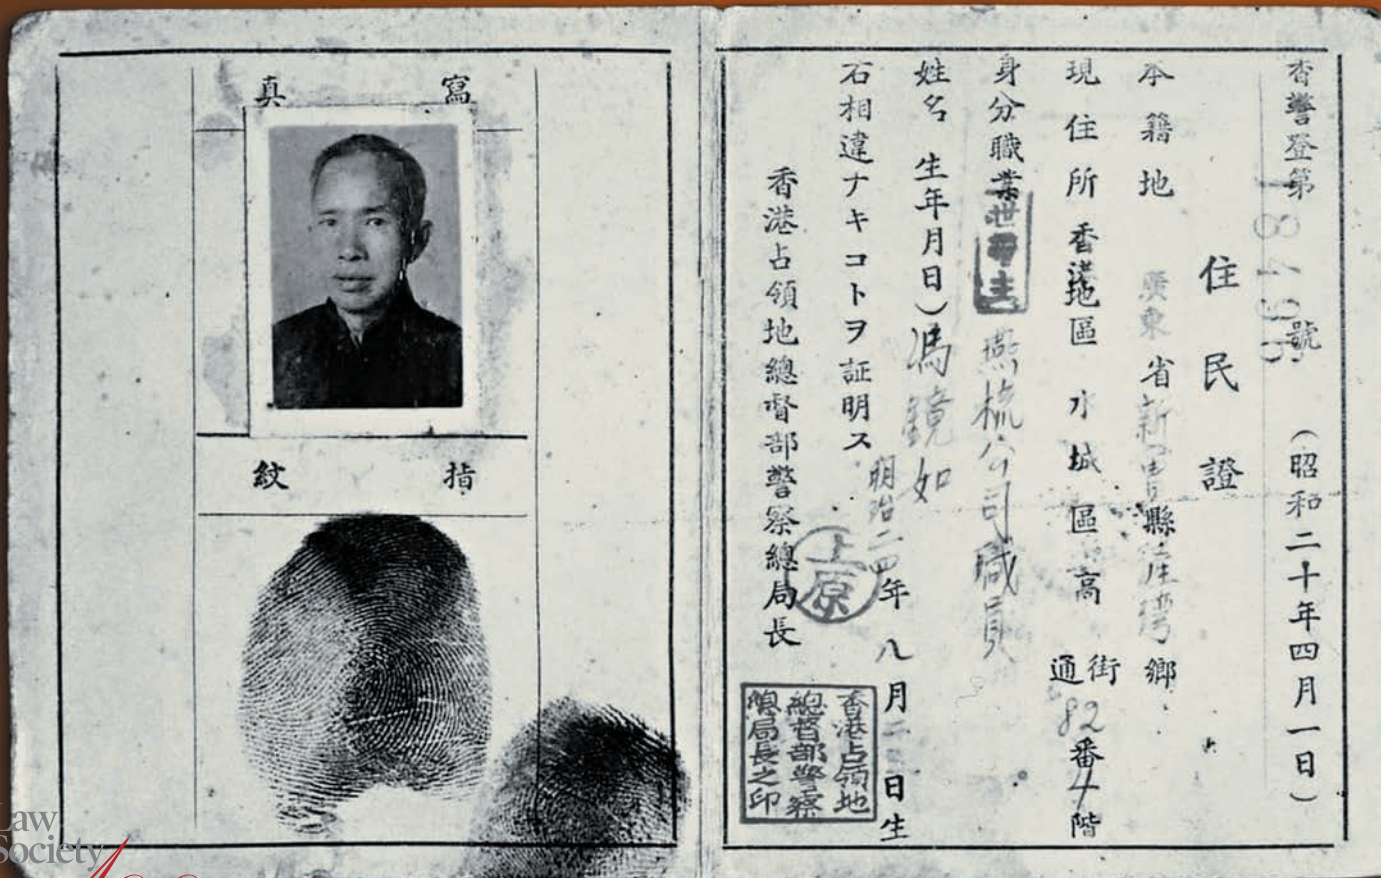 香警登第18496號 (昭和二十年四月一日)
住民證
本籍地 廣東省新會縣 鄉
現住所 香港地區 水城區高 街通 82番4階
身分職業 世帯主 燕梳公司職員
姓名 生年月日) 馮鏡如
明治二四年八月 日生
右相違ナキコトヲ証明ス
香港占領地總督部警察總局長
上原
香港占領地
總督部警察
總局長之印
寫真
指紋
Law
Society